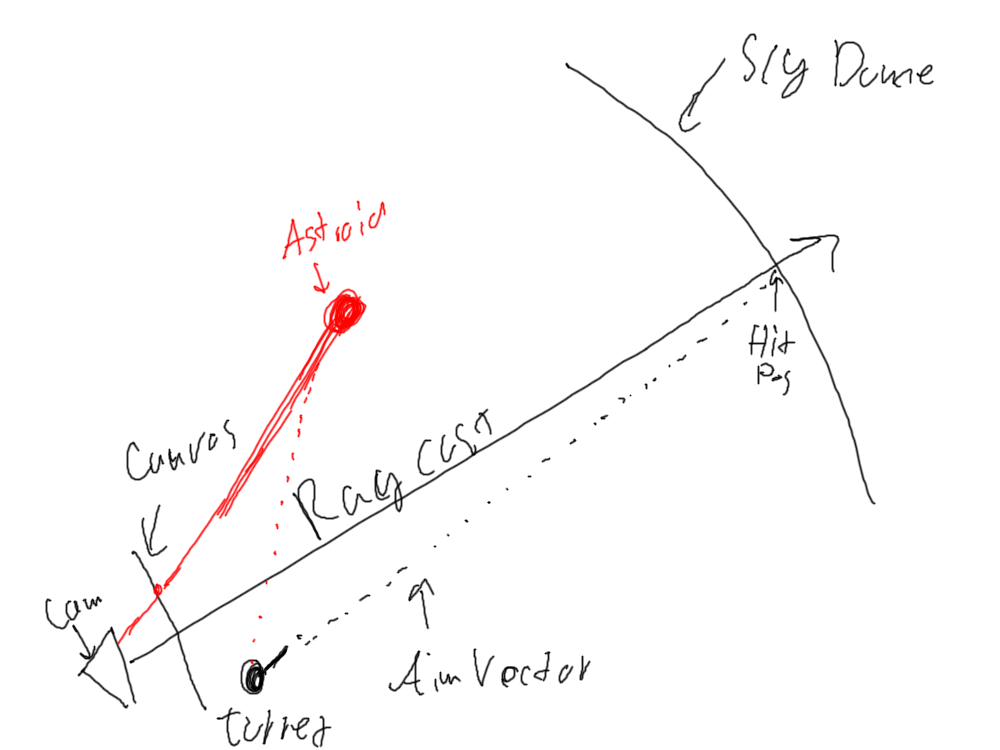 Sky Dome
Astroid
Hit
Pos
Canvas
Ray cast
Cam
Aim Vector
turret